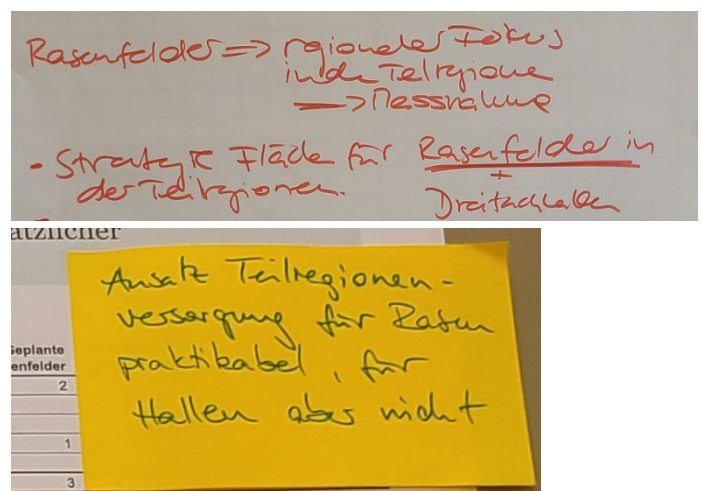 Rasenfelder => regionaler Fokus
in den Teilregionen
—> Massnahme
- Strategie Fläche für Rasenfelder in
der Teilregionen. +
Dreifachhallen
ätzlicher
Ansatz Teilregionen-
versorgung für Rasen
praktikabel, für
Hallen aber nicht
Geplante
enfelder
2
1
3